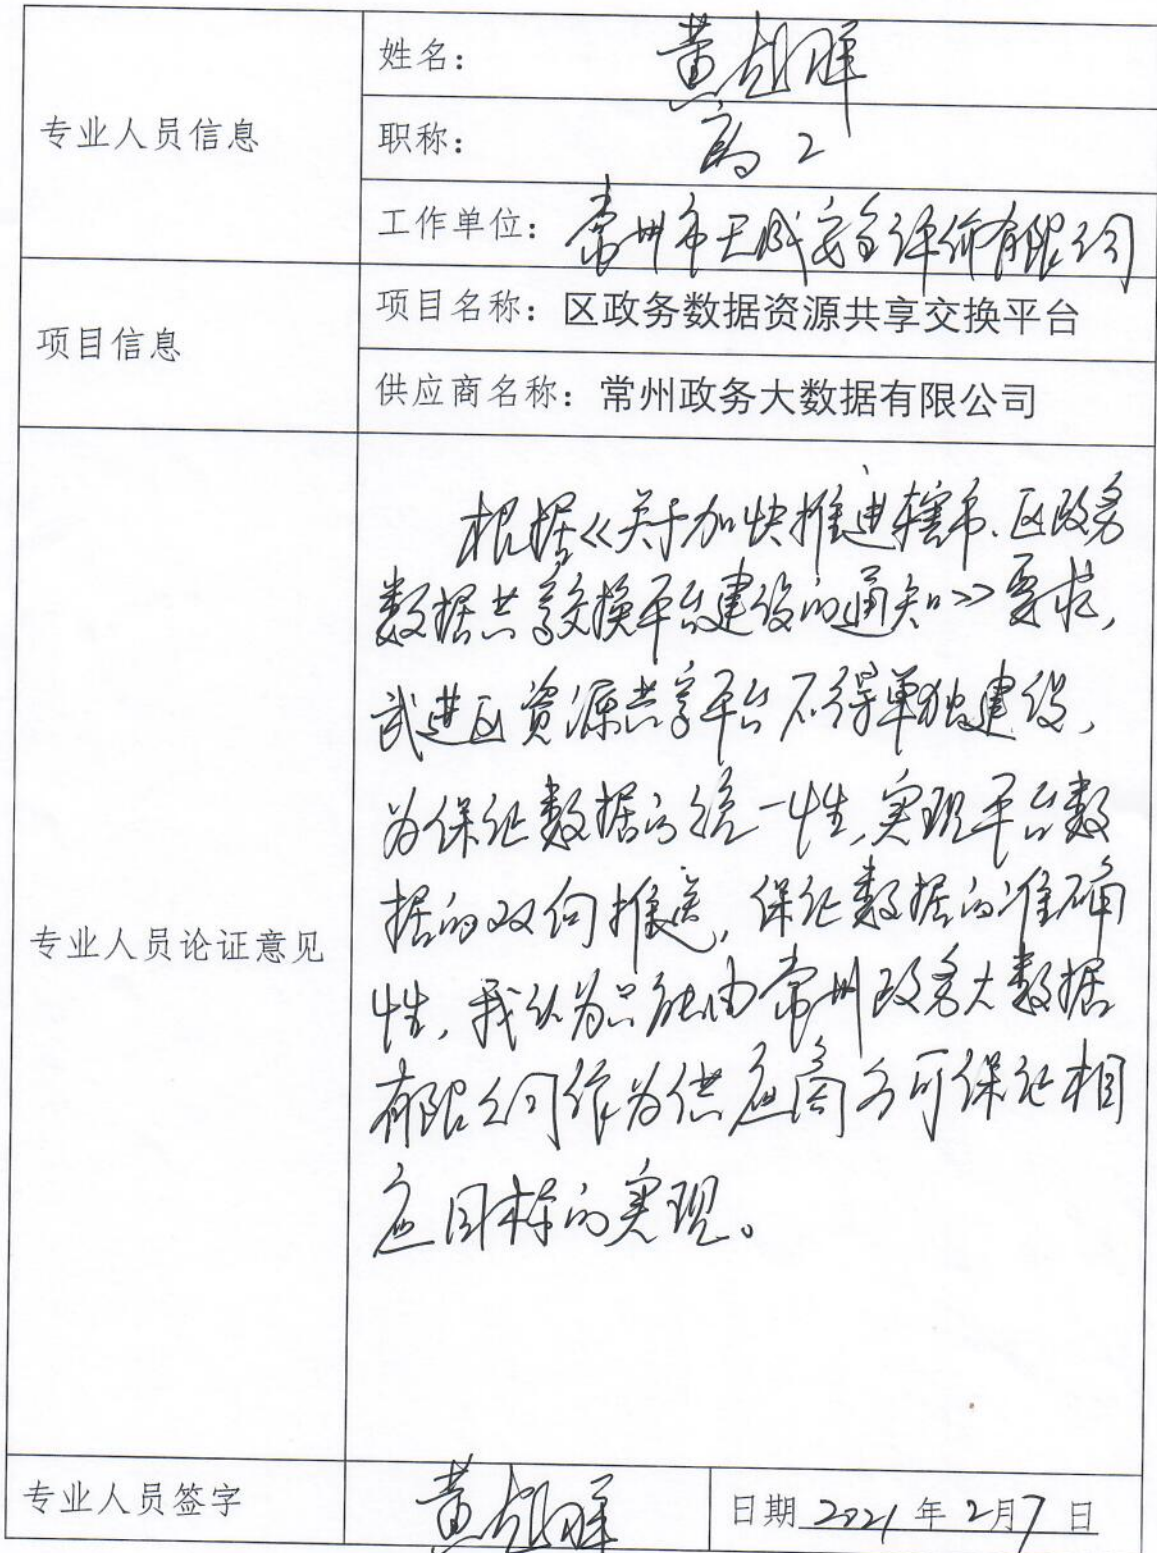 专业人员信息
姓名：黄
职称：高工
工作单位：常州市天成安全评价有限公司
项目信息
项目名称：区政务数据资源共享交换平台
供应商名称：常州政务大数据有限公司
专业人员论证意见
根据《关于加快推进辖市、区政务
数据共享交换平台建设的通知》要求，
武进区资源共享平台不得单独建设，
为保证数据的统一性，实现平台数
据的双向推送，保证数据的准确
性，我认为只能由常州政务大数据
有限公司作为供应商方可保证相
应目标的实现。
专业人员签字
黄
日期 2021 年 2月7 日